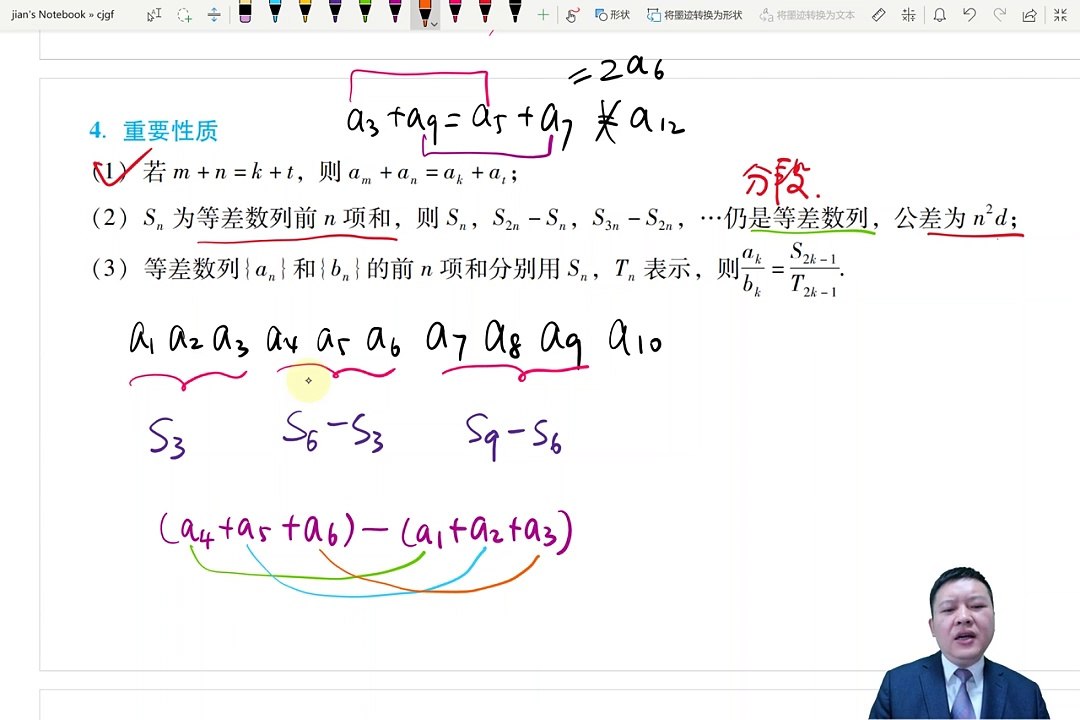 jian's Notebook » cjgf
形状
将墨迹转换为形状
将墨迹转换为文本
= 2a₆
a₃ + a₉ = a₅ + a₇ ≠ a₁₂
4. 重要性质
(1) 若 m + n = k + t，则 aₘ + aₙ = aₖ + aₜ；
分段.
(2) Sₙ 为等差数列前 n 项和，则 Sₙ，S₂ₙ − Sₙ，S₃ₙ − S₂ₙ，…仍是等差数列，公差为 n²d；
(3) 等差数列{aₙ}和{bₙ}的前 n 项和分别用 Sₙ，Tₙ 表示，则 aₖ/bₖ = S₂ₖ₋₁/T₂ₖ₋₁.
a₁ a₂ a₃ a₄ a₅ a₆ a₇ a₈ a₉ a₁₀
S₃ S₆ − S₃ S₉ − S₆
(a₄ + a₅ + a₆) − (a₁ + a₂ + a₃)